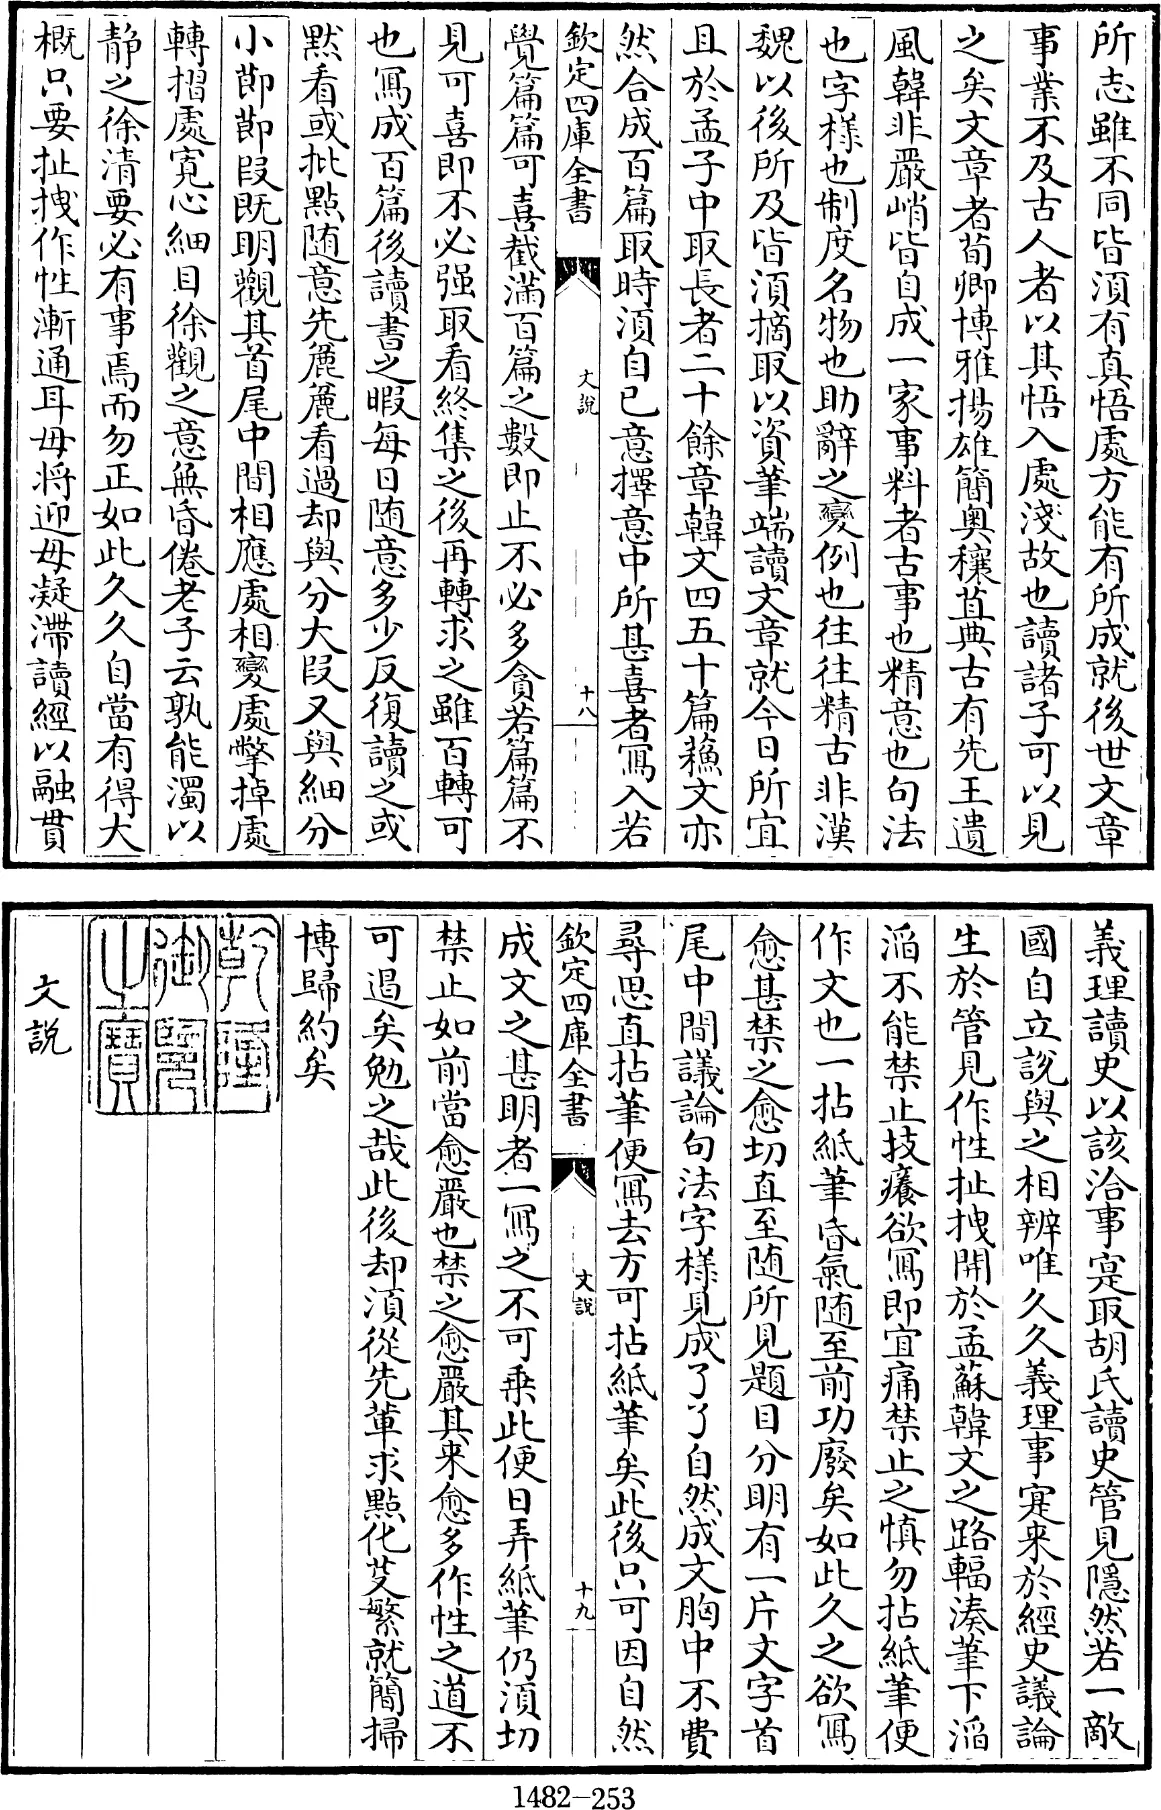 所志雖不同皆須有真悟處方能有所成就後世文章
事業不及古人者以其悟入處淺故也讀諸子可以見
之矣文章者荀卿博雅揚雄簡奥穰苴典古有先王遺
風韓非嚴峭皆自成一家事料者古事也精意也句法
也字様也制度名物也助辭之變例也往往精古非漢
魏以後所及皆須摘取以資筆端讀文章就今日所宜
且於孟子中取長者二十餘章韓文四五十篇蘇文亦
然合成百篇取時須自已意擇意中所甚喜者寫入若
欽定四庫全書
文說
十八
覺篇篇可喜截滿百篇之數即止不必多貪若篇篇不
見可喜即不必强取看終集之後再轉求之雖百轉可
也寫成百篇後讀書之暇每日随意多少反復讀之或
黙看或批點随意先麄麄看過却與分大段又與細分
小節節段既明觀其首尾中間相應處相變處幣掉處
轉摺處寛心細目徐觀之意無昏倦老子云孰能濁以
靜之徐清要必有事焉而勿正如此久久自當有得大
概只要扯拽作性漸通耳毋将迎毋凝滯讀經以融貫
義理讀史以該洽事寔取胡氏讀史管見隱然若一敵
國自立說與之相辨唯久久義理事寔来於經史議論
生於管見作性扯拽開於孟蘇韓文之路輻湊筆下滔
滔不能禁止技癢欲寫即宜痛禁止之慎勿拈紙筆便
作文也一拈紙筆昏氣随至前功廢矣如此久之欲寫
愈甚禁之愈切直至随所見題目分明有一片文字首
尾中間議論句法字様見成了了自然成文胸中不費
尋思直拈筆便寫去方可拈紙筆矣此後只可因自然
欽定四庫全書
文說
十九
成文之甚明者一寫之不可乗此便日弄紙筆仍須切
禁止如前當愈嚴也禁之愈嚴其来愈多作性之道不
可過矣勉之哉此後却須從先軰求點化芟繁就簡掃
博歸約矣
乾隆
御覽
之寶
文說
1482-253